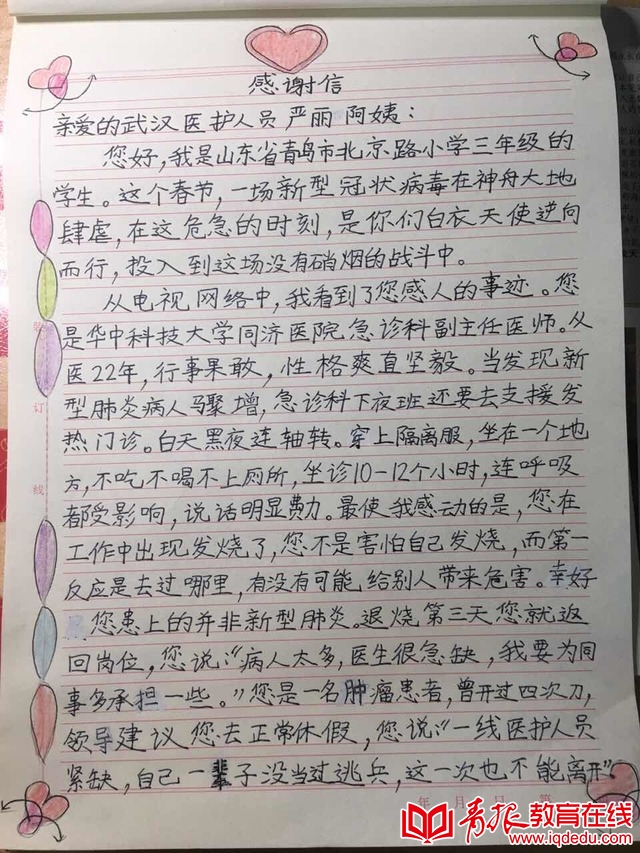 感谢信
亲爱的武汉医护人员严丽 阿姨：
您好，我是山东省青岛市北京路小学三年级的
学生。这个春节，一场新型冠状病毒在神舟大地
肆虐，在这危急的时刻，是你们白衣天使逆向
而行，投入到这场没有硝烟的战斗中。
从电视网络中，我看到了您感人的事迹。您
是华中科技大学同济医院急诊科副主任医师。从
医22年，行事果敢，性格爽直坚毅。当发现新
型肺炎病人马聚增，急诊科下夜班还要去支援发
热门诊。白天黑夜连轴转。穿上隔离服，坐在一个地
方，不吃不喝不上厕所，坐诊10-12个小时，连呼吸
都受影响，说话明显费力。最使我感动的是，您在
工作中出现发烧了，您不是害怕自己发烧，而第一
反应是去过哪里，有没有可能给别人带来危害。幸好
您患上的并非新型肺炎。退烧第三天您就返
回岗位，您说：“病人太多，医生很急缺，我要为同
事多承担一些。”您是一名肿瘤患者，曾开过四次刀，
领导建议您去正常休假，您说：“一线医护人员
紧缺，自己一辈子没当过逃兵，这一次也不能离开”。
装
订
线
年 月 日 第
青报教育在线
www.iqdedu.com